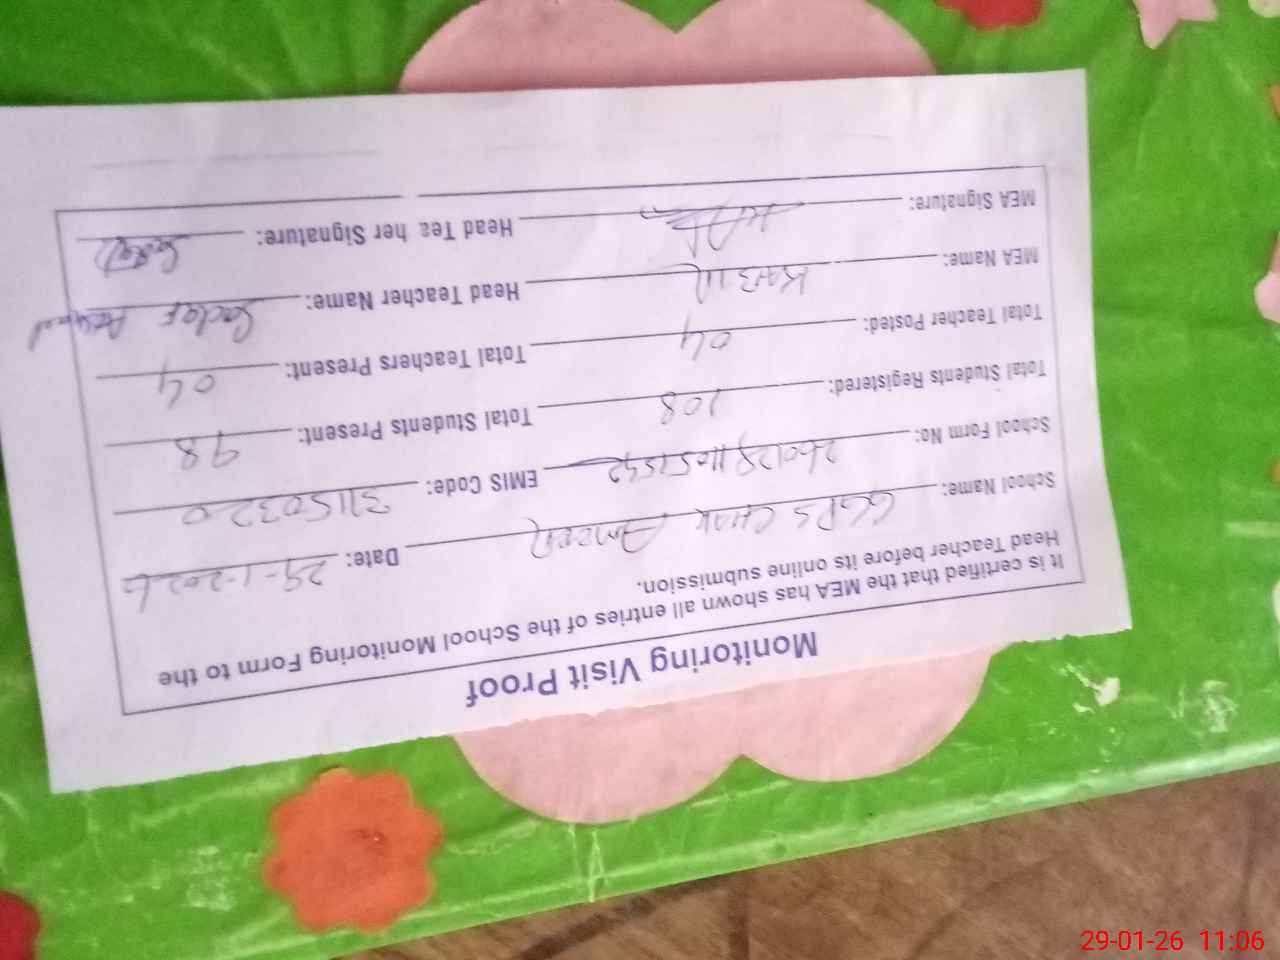 Monitoring Visit Proof
It is certified that the MEA has shown all entries of the School Monitoring Form to the
Head Teacher before its online submission.
School Name: GGPS CHAK AMEER Date: 29-1-2026
School Form No: EMIS Code: 31150320
Total Students Registered: 108 Total Students Present: 98
Total Teacher Posted: 04 Total Teachers Present: 04
MEA Name: KABIR Head Teacher Name: Sadaf
MEA Signature: Head Teacher Signature: Sadaf
29-01-26 11:06